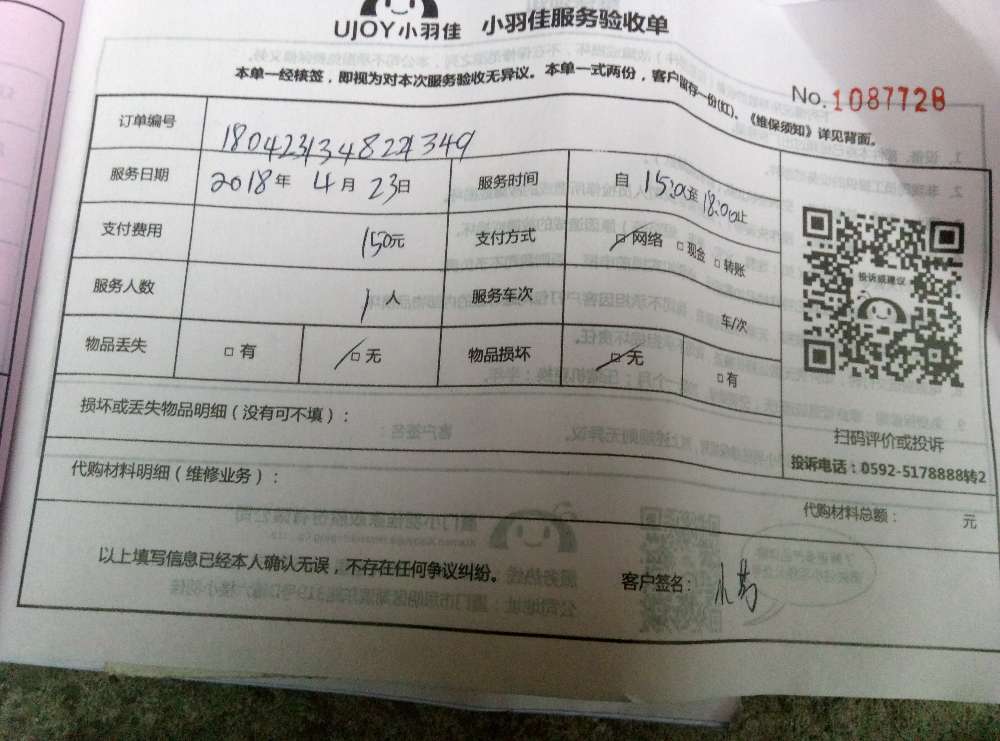 UJOY小羽佳 小羽佳服务验收单
本单一经核签，即视为对本次服务验收无异议。本单一式两份，客户留存一份(红)、《维保须知》详见背面。
No. 1087728
订单编号 1804231348221349
服务日期 2018年 4月 23日 服务时间 自 15:00至 18:00止
支付费用 150元 支付方式 □网络 □现金 □转账
服务人数 1人 服务车次 车/次
物品丢失 □有 □无 物品损坏 □无 □有
投诉或建议
损坏或丢失物品明细（没有可不填）：
扫码评价或投诉
投诉电话：0592-5178888转2
代购材料明细（维修业务）：
代购材料总额： 元
以上填写信息已经本人确认无误，不存在任何争议纠纷。
客户签名：